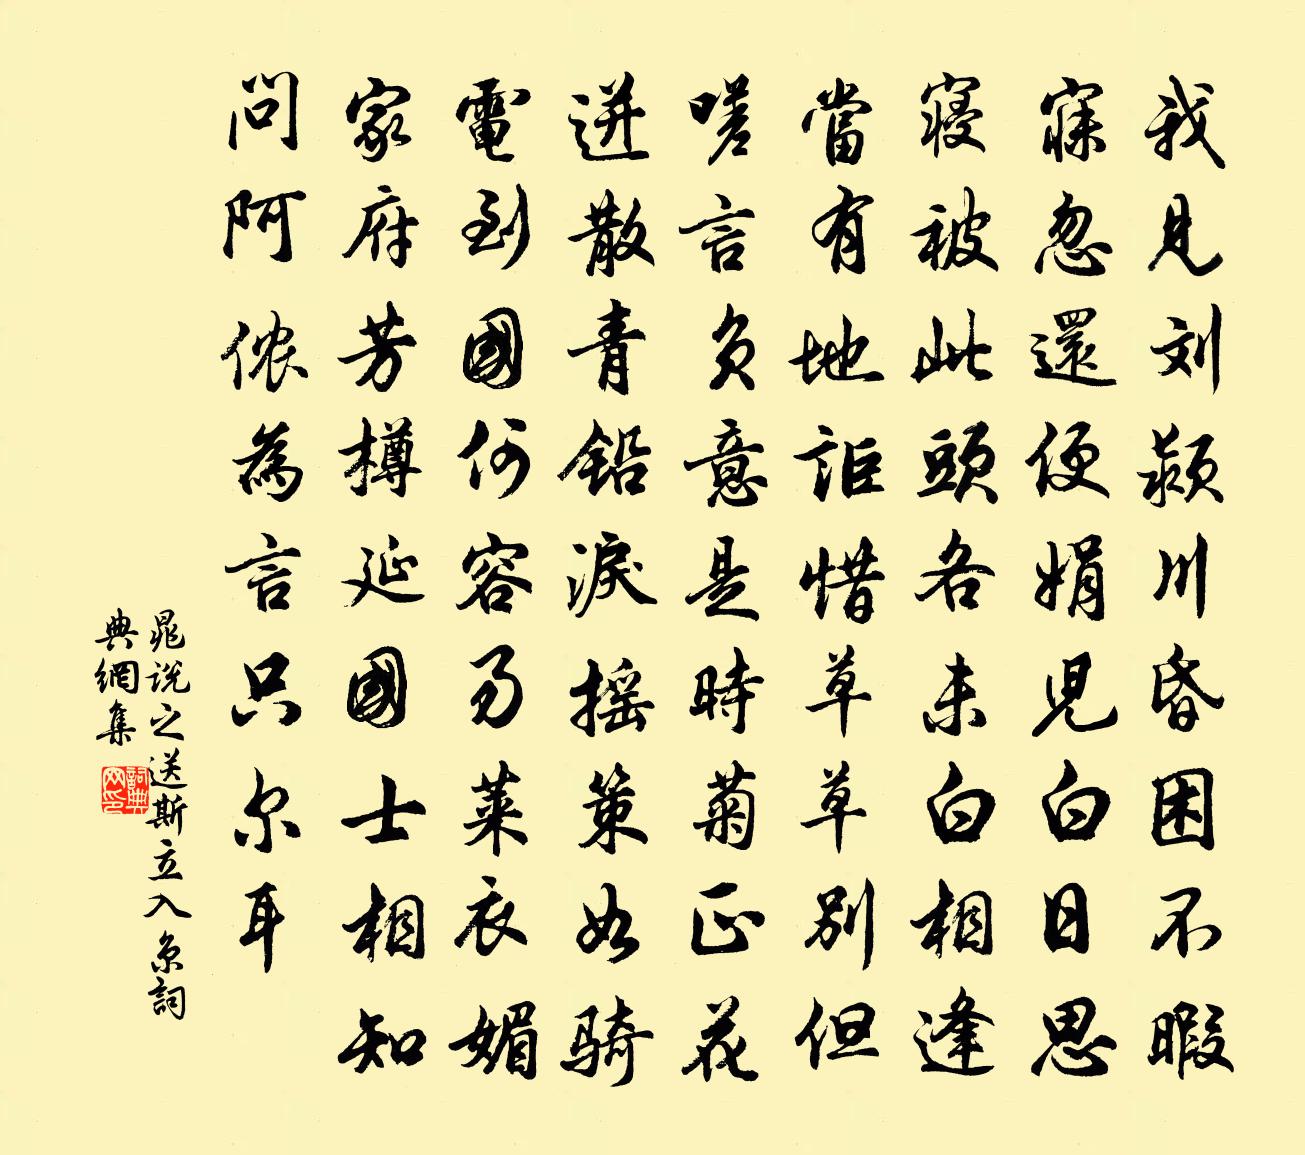 我見刘颍川昏困不暇
寐忽還便娟児白日思
寝被此頭各未白相逢
當有地詎惜草草别但
嗟言負意是時菊正花
迸散青鉛淚摇策如騎
電到國何容易萊衣媚
家府芳樽延國士相知
問阿侬為言只尔耳
晁説之送斯立入京詞
典網集
詞典
网印